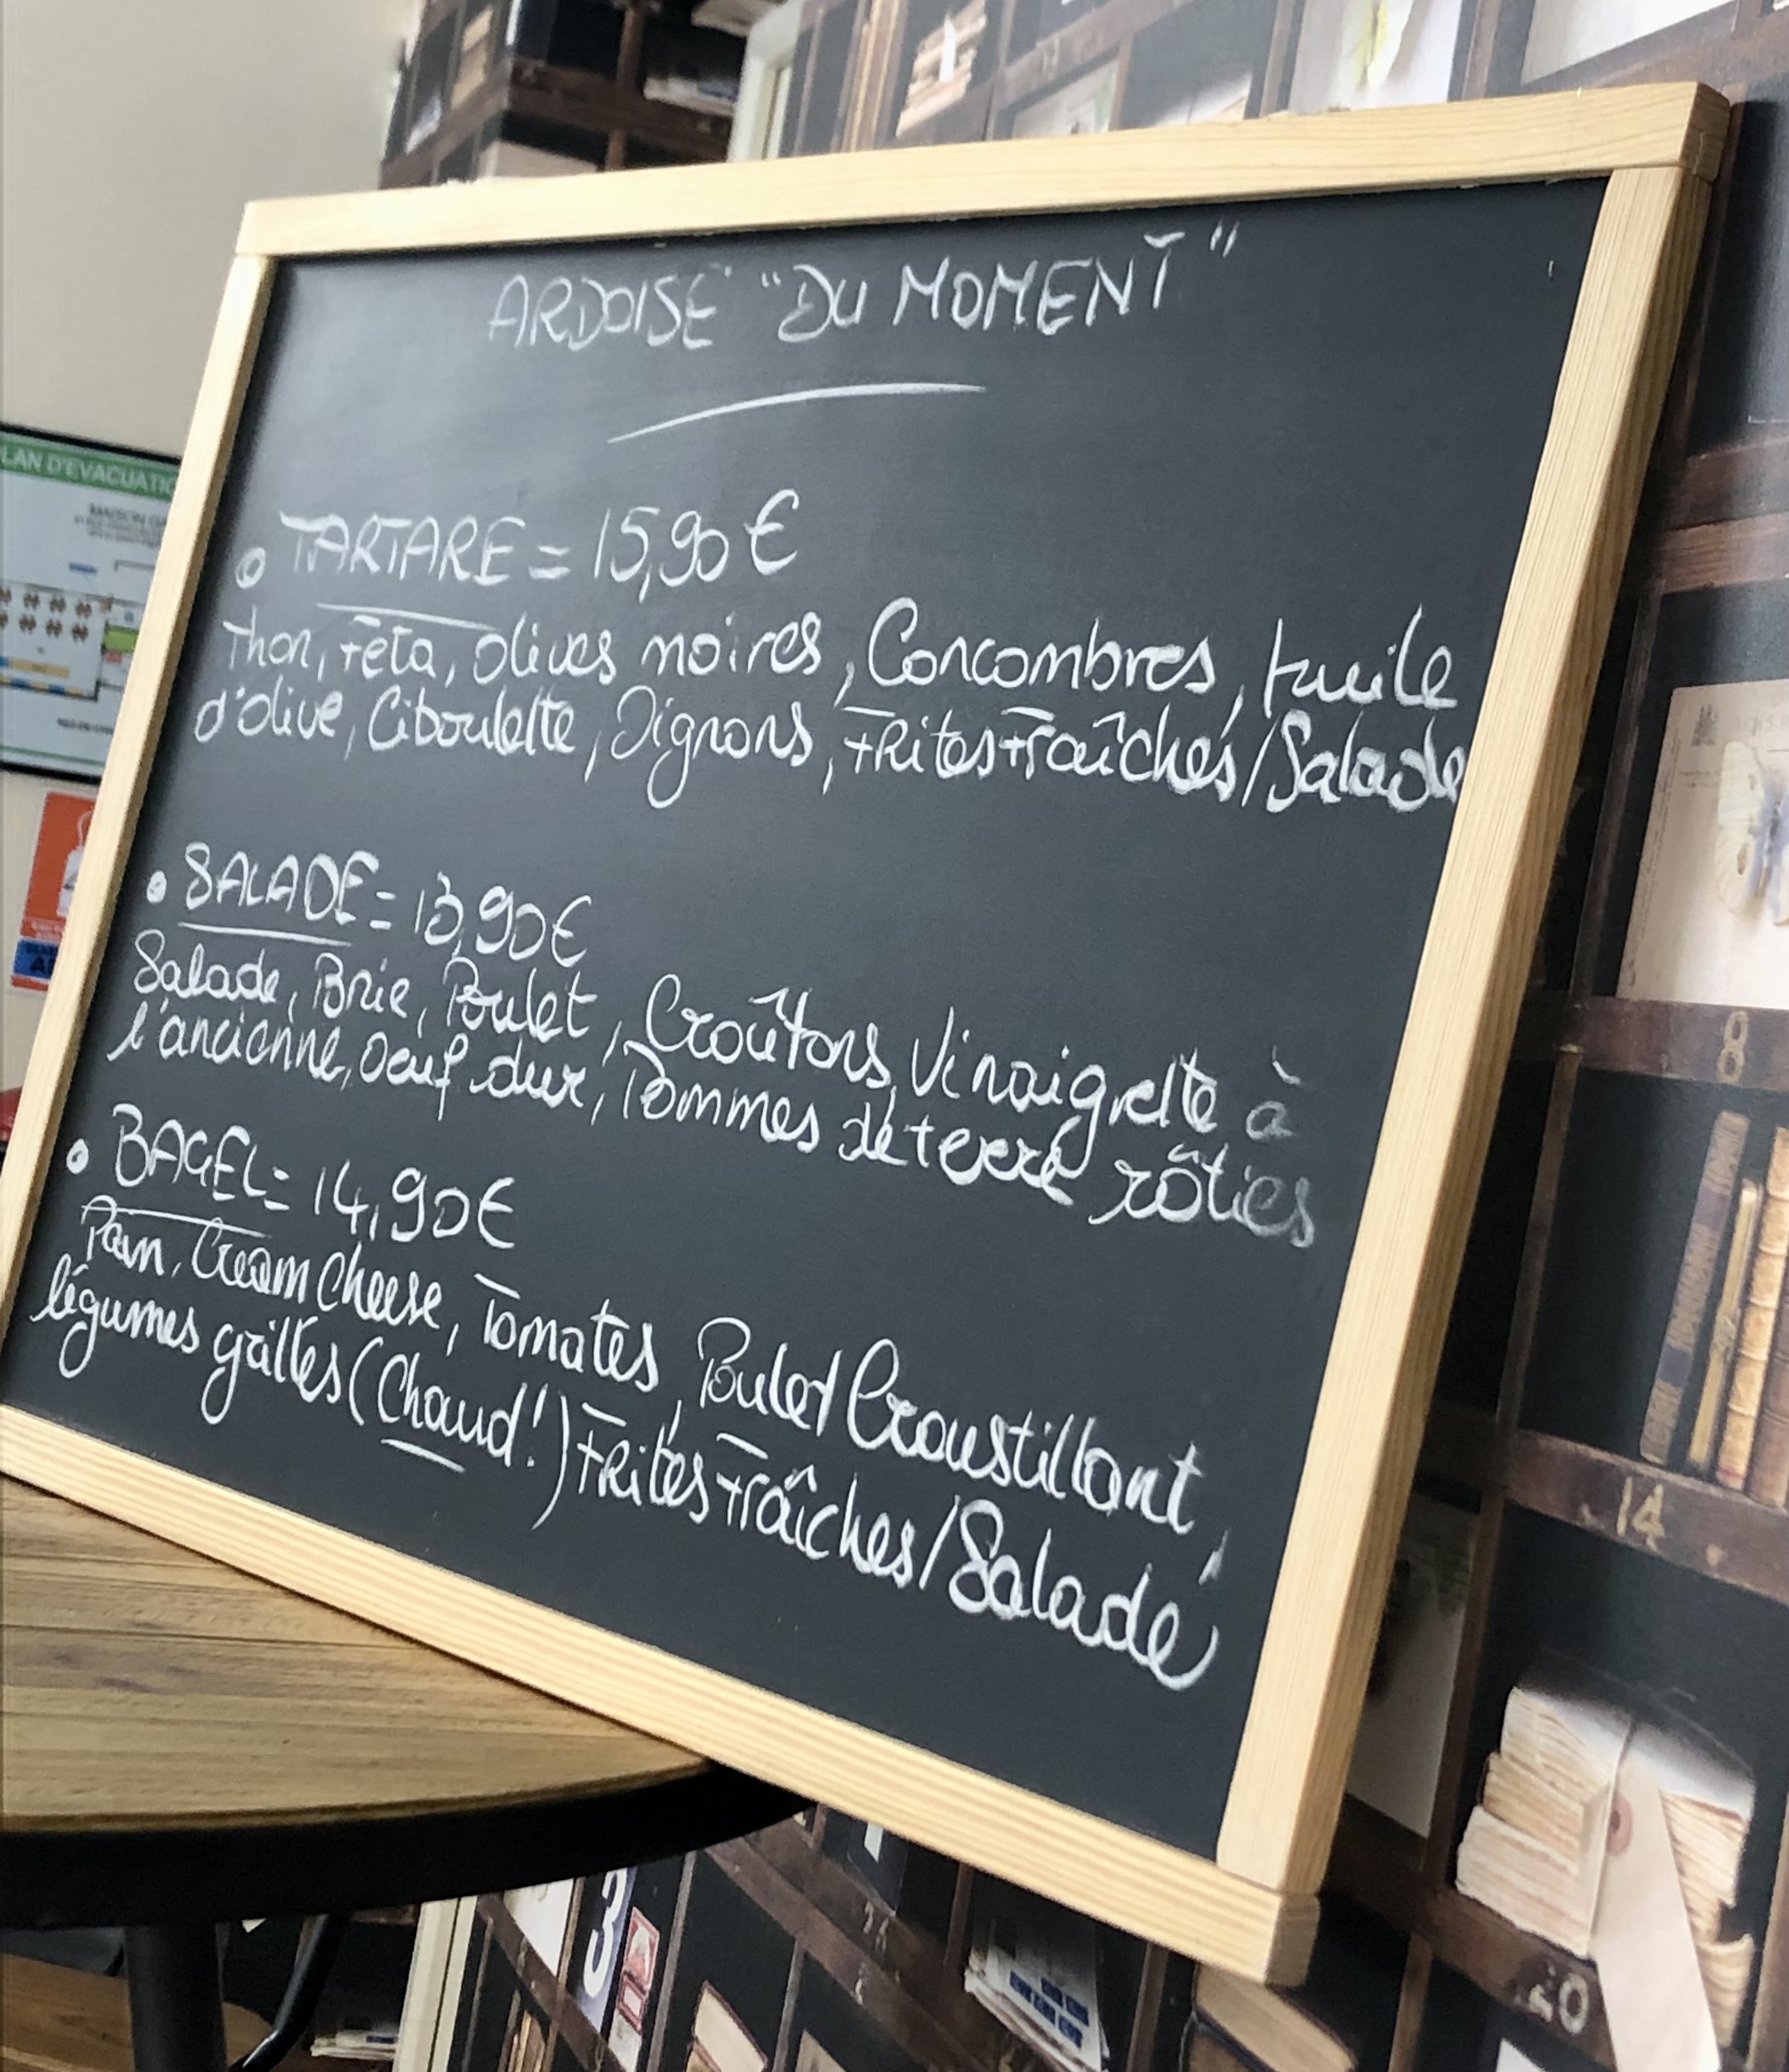 ARDOISE "DU MOMENT"
• TARTARE = 15,90 €
Thon, Fêta, Olives noires, Concombres, Huile
d'olive, Ciboulette, Oignons, Frites Fraîches/Salade
• SALADE = 13,90 €
Salade, Brie, Poulet, Croûtons, Vinaigrette à
l'ancienne, Oeuf dur, Pommes de terre rôties
• BAGEL = 14,90 €
Pain, Cream Cheese, Tomates, Poulet Croustillant,
légumes grillés (Chaud!) Frites Fraîches/Salade
PLAN D'EVACUATION
MAISON
8
14
20
3